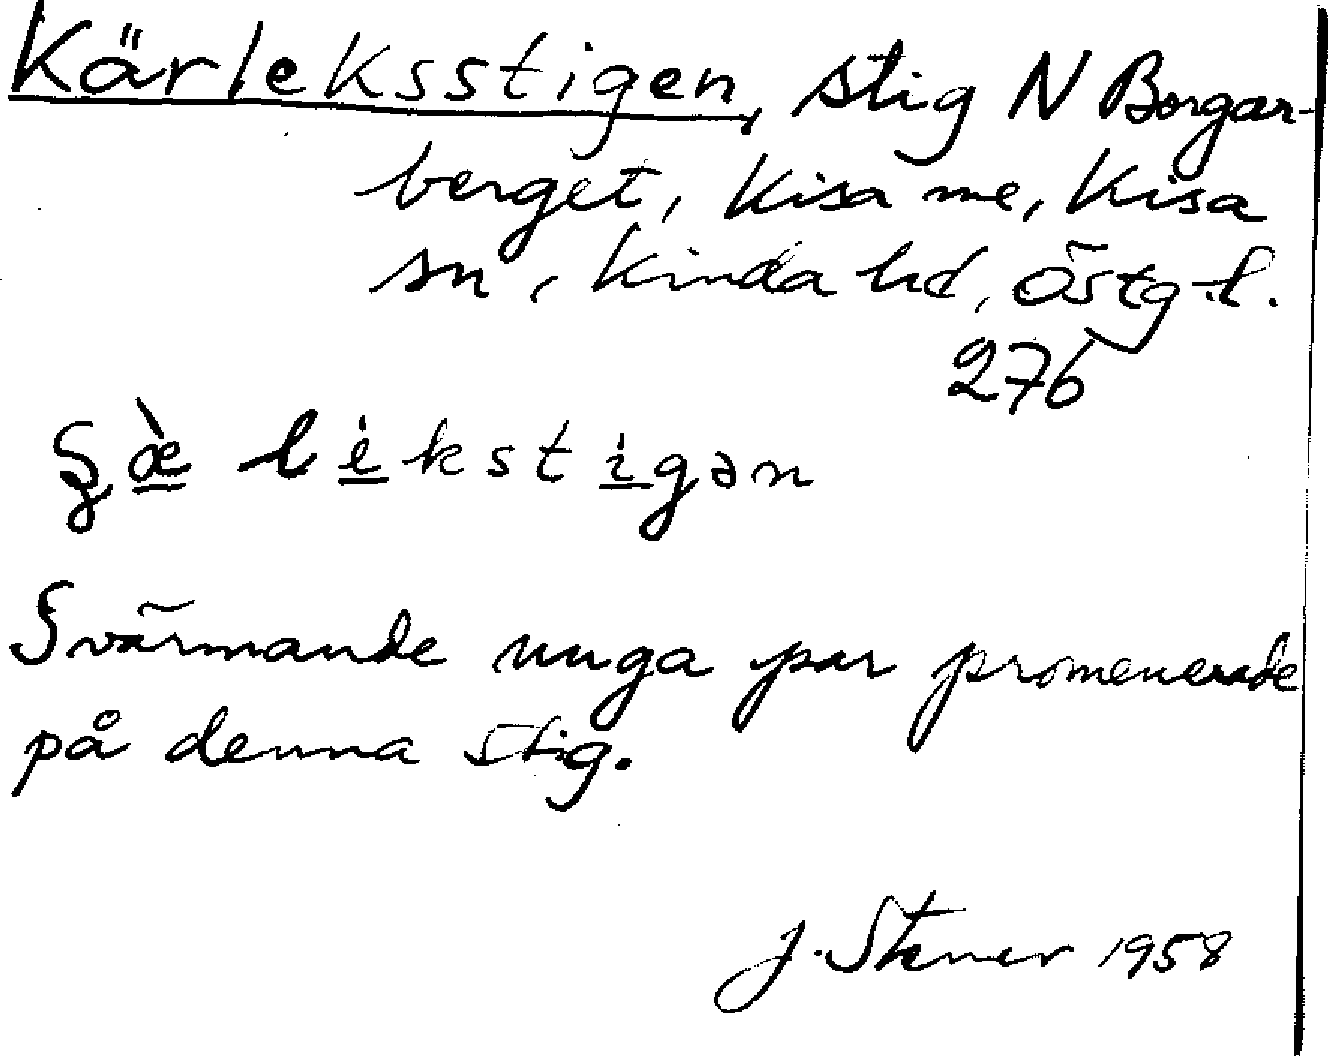 Kärleksstigen, stig N Borgar-
berget, Kisa me, Kisa
sn, Kinda hd, Östg.l.
276
lèkstigən
Svärmande unga par promenerade
på denna stig.
J. Stener 1958